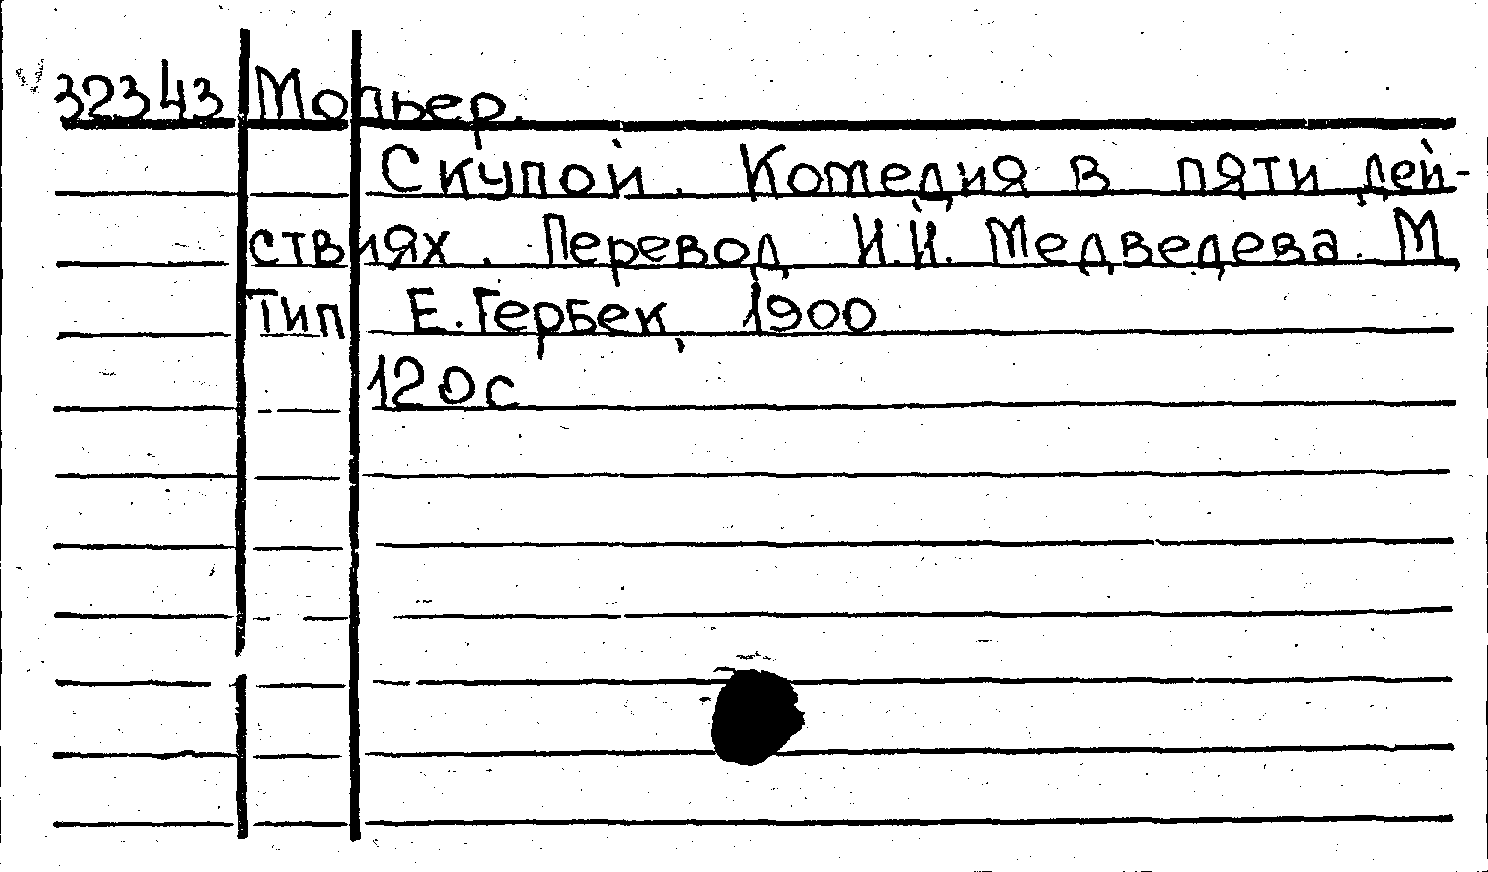 32343 Мольер.
Скупой. Комедия в пяти дей-
ствиях. Перевод И.И. Медведева. М,
Тип Е. Гербек, 1900
120с